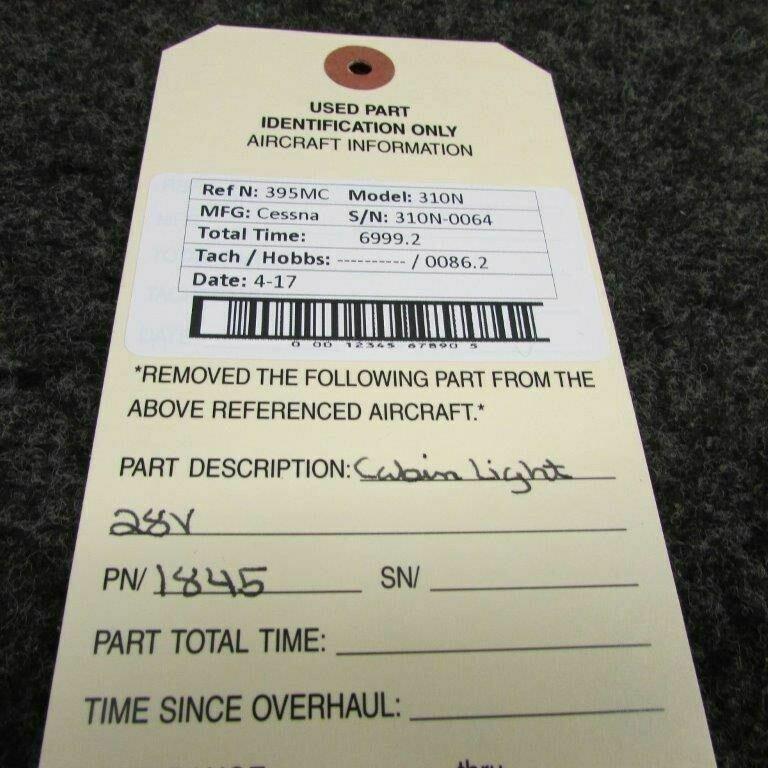 USED PART
IDENTIFICATION ONLY
AIRCRAFT INFORMATION
Ref N: 395MC Model: 310N
MFG: Cessna S/N: 310N-0064
Total Time: 6999.2
Tach / Hobbs: ---------- / 0086.2
Date: 4-17
0 00 12345 67890 5
*REMOVED THE FOLLOWING PART FROM THE
ABOVE REFERENCED AIRCRAFT.*
PART DESCRIPTION: Cabin Light
28V
PN/ 1845 SN/
PART TOTAL TIME:
TIME SINCE OVERHAUL: